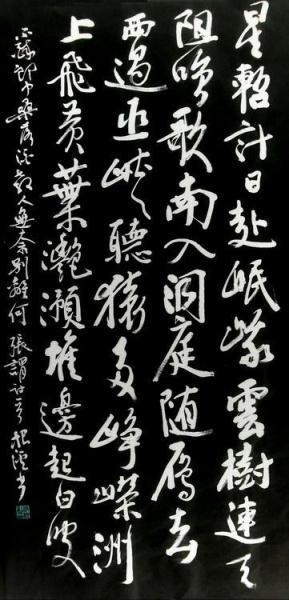 星軺計日赴岷峩雲樹連天
阻咲歌南入洞庭随雁去
西過巫峽聽猿多崢嶸洲
上飛黃葉灩澦堆邊起白波
不醉郎中桑落酒教人無奈別離何 張謂詩 書